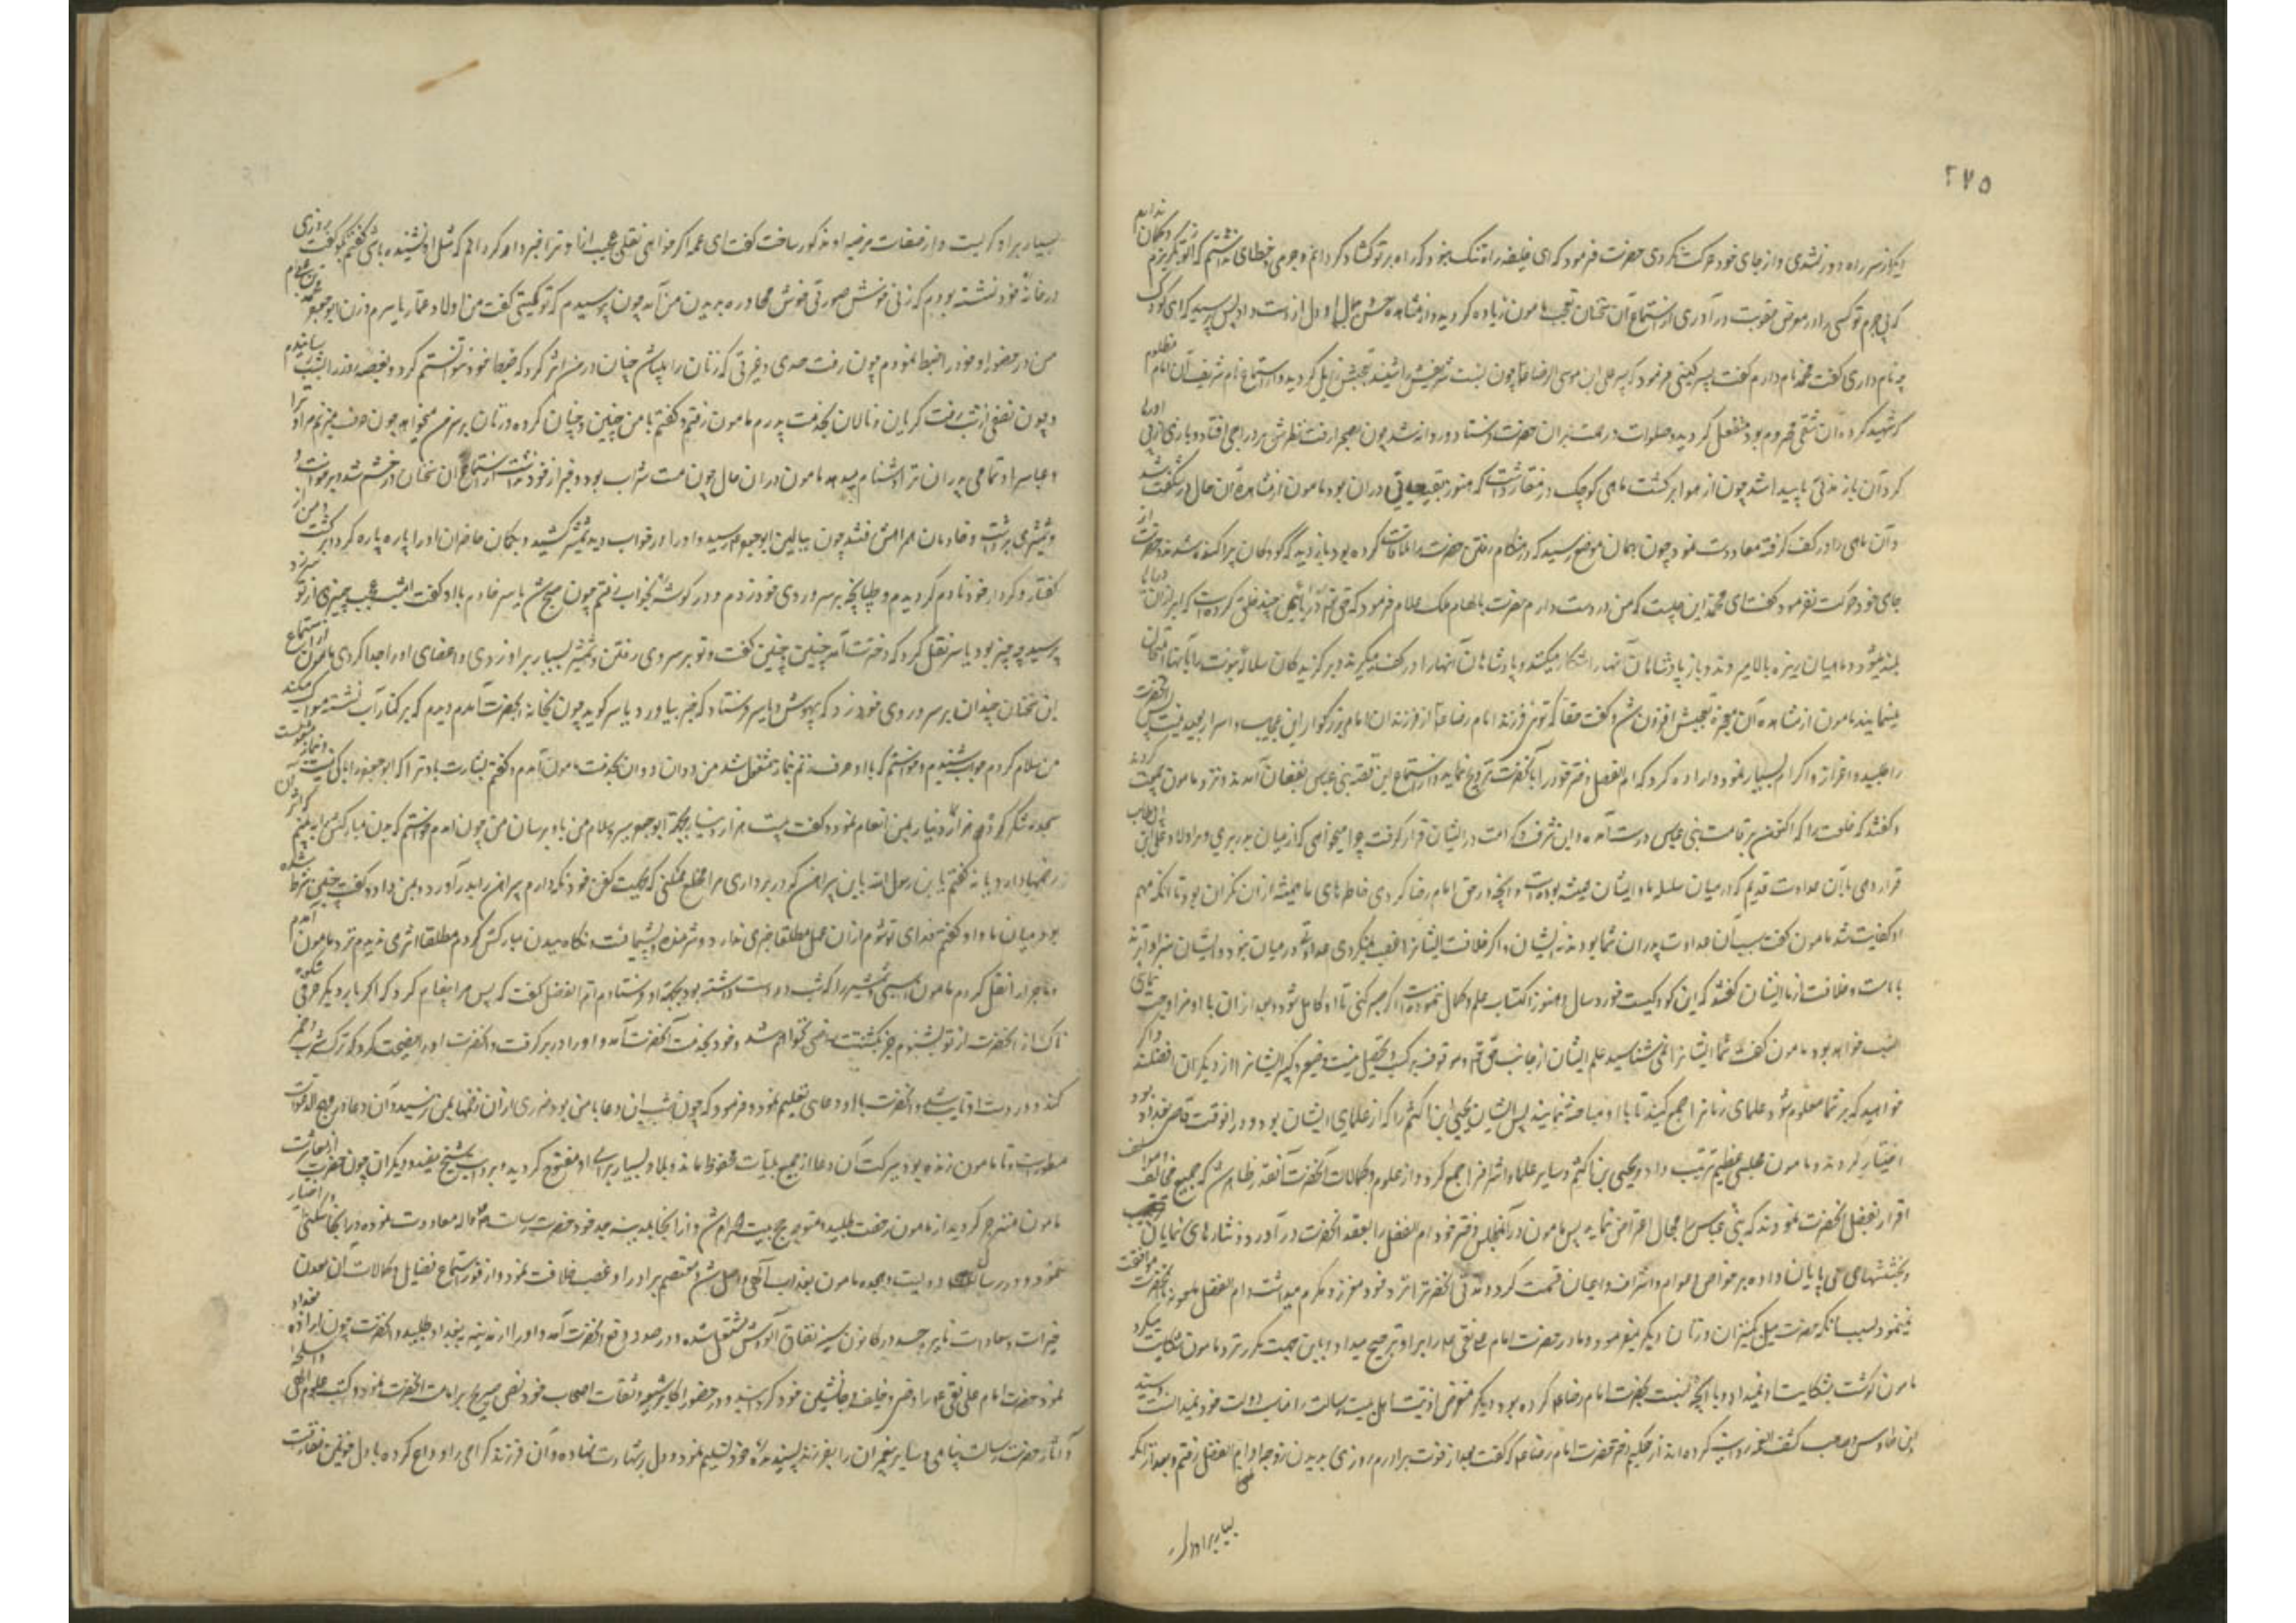 ۲۷۵
از سر راه دور نشدی و از جای خود حرکت نکردی حضرت فرمود که ای خلیفه راه تنگ نبود که راه بر تو گشاد گردانم و جرمی و خطای نداشتم که از تو بگریزم و گمان ندارم
که بی جرم تو کسی را در معرض عقوبت در آوری از استماع آن سخنان تعجب مامون زیاده گردید و از مشاهده حسن جمال او دل از دست داد پس پرسید که ای کودک
چه نام داری گفت محمد نام دارم گفت پسر کیستی فرمود که پسر علی ابن موسی الرضا چون نسبت شریفش را شنید تعجبش زایل گردید و از استماع نام شریف آن امام مظلوم
که شهید کرده آن شقی محروم بود منفعل گردید و صلوات و رحمت بر آن حضرت فرستاد و روانه شد چون بصحرا رفت نظرش بر دراجی افتاد و بازی از پی او رها
کرد آن باز مدتی ناپیدا شد چون از هوا برگشت ماهی کوچک در منقار داشت که هنوز بقیه حیاتی در آن بود مامون از مشاهده آن حال در شگفت شد
و آن ماهی را در کف گرفته معاودت نمود چون بهمان موضع رسید که در هنگام رفتن حضرت را ملاقات کرده بود باز دید که کودکان پراکنده شدند و حضرت از
جای خود حرکت نفرمود گفت ای محمد این چیست که من در دست دارم حضرت بالهام ملک علام فرمود که حق تعالی دریائی چند خلق کرده است که ابر از آن دریاها
بلند میشود و ماهیان ریزه بالا میروند و بازهای پادشاهان آنها را شکار میکنند و پادشاهان آنها را در کف میگیرند و برگزیدگان سلاله نبوت را بآنها امتحان
مینمایند مامون از مشاهده آن معجزه تعجبش افزون شد و گفت حقا که توئی فرزند امام رضا و از فرزندان امام بزرگوار این عجایب و اسرار بعید نیست پس آنحضرت
را طلبید و اعزاز و اکرام بسیار نمود و اراده کرد که ام الفضل دختر خود را بآنحضرت تزویج نماید از استماع این قصه بنی عباس بفغان آمدند و نزد مامون جمعیت کردند
و گفتند که خلعت را که اکنون بر قامت بنی عباس درست آمده و این شرف و کرامت در ایشان قرار گرفته چرا میخواهی که از میان ما بدر بری و در اولاد علی ابن ابی طالب
قرار دهی با آن عداوت قدیم که در میان سلسله ما و ایشان همیشه بوده است و آنچه در حق امام رضا کردی خاطرهای ما همیشه از آن نگران بود تا آنکه مهم
او کفایت شد مامون گفت سبب آن عداوت پدران شما بودند نه ایشان و اگر خلافت ایشان را غصب نمیکردی عداوتی در میان نبود و ایشان سزاوارترند
بامامت و خلافت از ما ایشان گفتند که این کودکیست خورد سال و هنوز اکتساب علم و کمال ننموده است اگر صبر کنی تا او کامل شود و بعد از آن با او مزاوجت نمای
انسب خواهد بود مامون گفت شما ایشان را نمی شناسید علم ایشان از جانب حق تعالی است و موقوف بر کسب و تحصیل نیست و صغیر و کبیر ایشان را از دیگران افضلند و اگر
خواهید که بر شما معلوم شود علمای زمان را جمع کنید تا با او مباحثه نمایند پس ایشان یحیی ابن اکثم را که از علمای ایشان بود و در آنوقت قاضی بغداد بود
اختیار کردند و مامون مجلسی عظیم ترتیب داد و یحیی بن اکثم و سایر علما و اشراف را جمع کرد و از علوم و کمالات آنحضرت آنقدر ظاهر شد که جمیع مخالف و موالف
اقرار بفضل آنحضرت نمودند که بنی عباس را مجال اعتراض نماند پس مامون در آن مجلس دختر خود ام الفضل را بعقد آنحضرت در آورد و نثارهای نمایان
و بخششهای بی پایان داده بر خواص و عوام و اشراف و اعیان قسمت کردند و مدتی آنحضرت را نزد خود معزز و مکرم میداشت و ام الفضل ملعونه بآنحضرت موافقت
نمینمود بسبب آنکه حضرت میل کنیزان و زنان دیگر میفرمود و مادر حضرت امام علی نقی را بر او ترجیح میداد و باین جهت مکرر نزد مامون شکایت میکرد
مامون گوش بشکایت او نمیداد و با آنچه نسبت بحضرت امام رضا کرده بود دیگر متعرض اذیت اهل بیت رسالت را مناسب دولت خود نمیدانست و سید
ابن طاوس و صاحب کشف الغمه روایت کرده اند از حکیمه دختر حضرت امام رضا که گفت بعد از فوت برادرم روزی بدیدن زوجه او ام الفضل رفتم و بعد از آنکه
بسیار بر او گریست
بسیار بر او گریست و از صفات مرضیه او مذکور ساخت گفت ای عمه اگر خواهی نقلی عجیب از او ترا خبردار گردانم که مثل او نشنیده باشی گفتم بگو گفت روزی
در خانه خود نشسته بودم که زنی خوش صورتی خوش محاوره بدیدن من آمد چون پرسیدم که تو کیستی گفت من از اولاد عمار یاسرم و زن ابو جعفر محمد بن علی ام
من در حضور او خود را ضبط نمودم چون رفت حسدی و غیرتی که زنان را باشد چنان در من اثر کرد که ضبط خود نتوانستم کرد و بغصه روز را بشب رسانیدم
و چون نصفی از شب رفت گریان و نالان بخدمت پدرم مامون رفتم و گفتم با من چنین و چنان کرده و زنان بر سر من میخواهد چون حرف میزنم مرا و ترا
و عباس را و تمامی پدران ترا دشنام میدهد مامون در آن حال چون مست شراب بود و خبر از خود نداشت از استماع آن سخنان در خشم شد و برخواست و
شمشیری برداشت و خادمان همراهش شدند چون ببالین ابو جعفر رسید و او را در خواب دید شمشیر کشید و بگمان حاضران او را پاره پاره کرد و برگشت و من از
گفتار و کردار خود نادم گردیدم و طپانچه بر سر و روی خود زدم و در گوشه بخواب رفتم چون صبح شد یاسر خادم باو گفت امشب عجب چیزی از تو سر زد
پرسید چه چیز بود یاسر نقل کرد که دخترت آمد چنین و چنین گفت و تو بر سر وی رفتی و شمشیر بسیار بر او زدی و اعضای او را جدا کردی مامون از استماع
این سخنان چندان بر سر و روی خود زد که بیهوش شد و یاسر را فرستاد که خبر بیاورد یاسر گوید چون بخانه آنحضرت آمدم دیدم که بر کنار آب نشسته مسواک میکند
من سلام کردم جواب شنیدم و خواستم که با او حرف زنم بنماز مشغول شد من دوان دوان بخدمت مامون آمدم و گفتم بشارت باد ترا که ابو جعفر را باکی نیست
سجده شکر کرد و هزار دینار بمن انعام نمود و گفت بیست هزار دینار بجهة ابو جعفر ببر و سلام من باو برسان من چون آمدم خواستم که بدن مبارکش را به بینم که اثر آن
زخمها دارد یا نه گفتم یا بن رسول الله باین پیراهن که در بر داری مرا مخلع میکنی که بجهت کفن خود نگه دارم پیراهن را بدر آورد و بمن داد و گفت چنین شرط شده
بود میان ما و او گفتم فدای تو شوم از آن عمل مطلقا خبری ندارد و شرمنده و پشیمان است و نگاه ببدن مبارکش کردم مطلقا اثری ندیدم نزد مامون آمدم
و ماجرا را نقل کردم مامون اسبی و شمشیر را که شب در دست داشته بود بجهة او فرستاد و ام الفضل گفت که پس مرا پیغام کرد که اگر بار دیگر حرفی شکوه
ناک از آنحضرت از تو بشنوم جز بکشتنت راضی نخواهم شد و خود بخدمت آنحضرت آمد و او را در بر گرفت و آنحضرت او را نصیحت کرد که ترک شراب
کند و در دست او تایب شد و آنحضرت باو دعای تعلیم نمود و فرمود که چون شب این دعا با من بود ضرری از آن زخمها بمن نرسید و آن دعا در مهج الدعوات
مسطور است و تا مامون زنده بود ببرکت آن دعا از جمیع بلیات محفوظ ماند و بلاد بسیار برای او مفتوح گردید
مامون منزجر گردید از مامون رخصت طلبید و متوجه حج بیت الحرام شد و از آنجا بمدینه جد خود حضرت رسالت معاودت نموده در آنجا سکنی
نمود و در سال دویست و هجده مامون بعذاب الهی واصل شد و معتصم برادر او غصب خلافت نمود و از وفور استماع فضایل و کمالات آن معدن
خیرات و سعادات نایره حسد در کانون سینه نفاق آئینش مشتعل شده و در صدد دفع آنحضرت آمد و او را از مدینه ببغداد طلبید و آنحضرت چون اراده بغداد
نمود حضرت امام علی نقی را وصی و خلیفه و جانشین خود گردانید و در حضور اکابر شیعه و ثقات اصحاب خود نص صریح بر امامت آنحضرت نمود و کتب علوم الهی و اسلحه
و آثار حضرت رسالت پناهی و سایر پیغمبران را بفرزند پسندیده خود تسلیم نمود و دل بر شهادت نهاده و آن فرزند گرامی را وداع کرده با دل خونین مفارقت